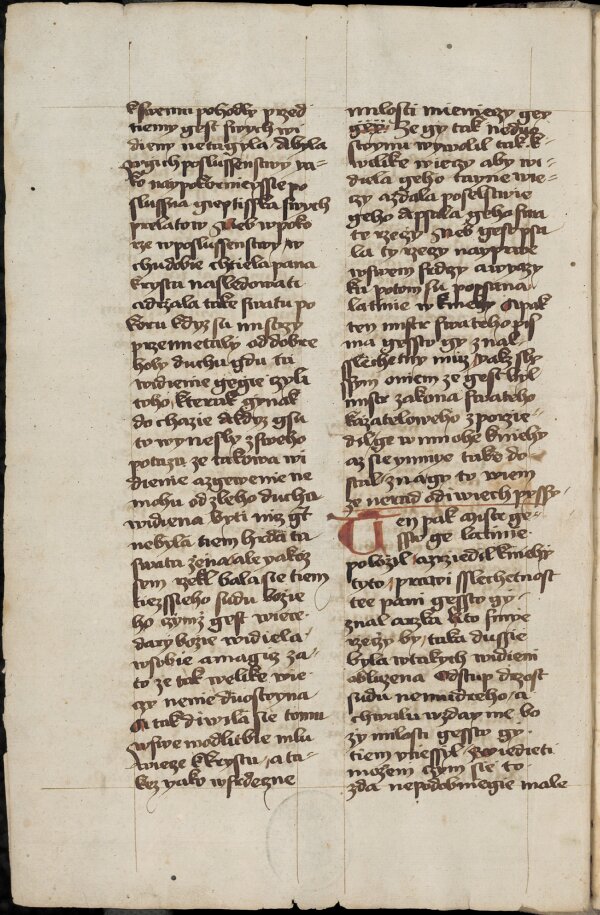 k swemu pohodly przed
niemy gest swych wi
dieny netagyla Abyla
w gich poslussenstwy ta
ko naypokornieyssie po
slussna
prelatow Neb w poko
rze w poslussenstwy w
chudobie chtiela pana
krysta nasledowati
a drzala take swatu po
koru kdyz su mistrzy
przemietaly od dobre
holy duchu gdu ta
widienie gegie czyli
toho kterak gynak
do chazie A kdyz gsu
to wynesly z sweho
potazu ze takowa wi
dienie a zgewenie ne
mohu od zleho ducha
widiena byti niz gt
nebyla tiem hrda ta
swata zena ale yakoz
sem rzekl bala sie tiem
tiezssieho sudu bozie
ho czymz gest wiece
dary bozie widiela
w sobie a magic za
to ze tak welike wie
czy nenie duostoyna
A tak diwila sie tomu
w swe modlitbie mlu
wieze k krystu a ta
koz yako w srdeczne
milosti mieniczy gey
ze gy tak neduo
stoynu wywolil tak k
welike wieczy aby wi
diela geho tayne wie
czy a zdala poselstwie
geho A psala geho swa
te rzeczy Neb gest psa
la ty rzeczy nayprwe
w swem srdczy a w yazy
ku potom su popsana
latinie w knihy A pak
ten mistr swateho pis
ma gessto gy znal
sslechetny muz yakz sly
ssym o niem ze gest byl
mistr zakona swateho
kazateloweho z porzie
dil ge w mnohe knihy
az sie ynynye tako do
stal z nagy to wiem
ze nerad o diwiech pyssy
Ten pak mistr ge
ssto ge latinie
polozil a zrziedil knihy
tyto prawi sslechetnost
tee pani gessto gy
znal a rzka kto smye
rzeczy by taka dussie
byla w takych widieni
obluzena Odstup drzost
sudu nemudreho a
chwalu wzdayme bo
zy milosti gessto gy
tiem vtiessyl Powiedieti
mozem czym sie to
zda nepodobniegie male